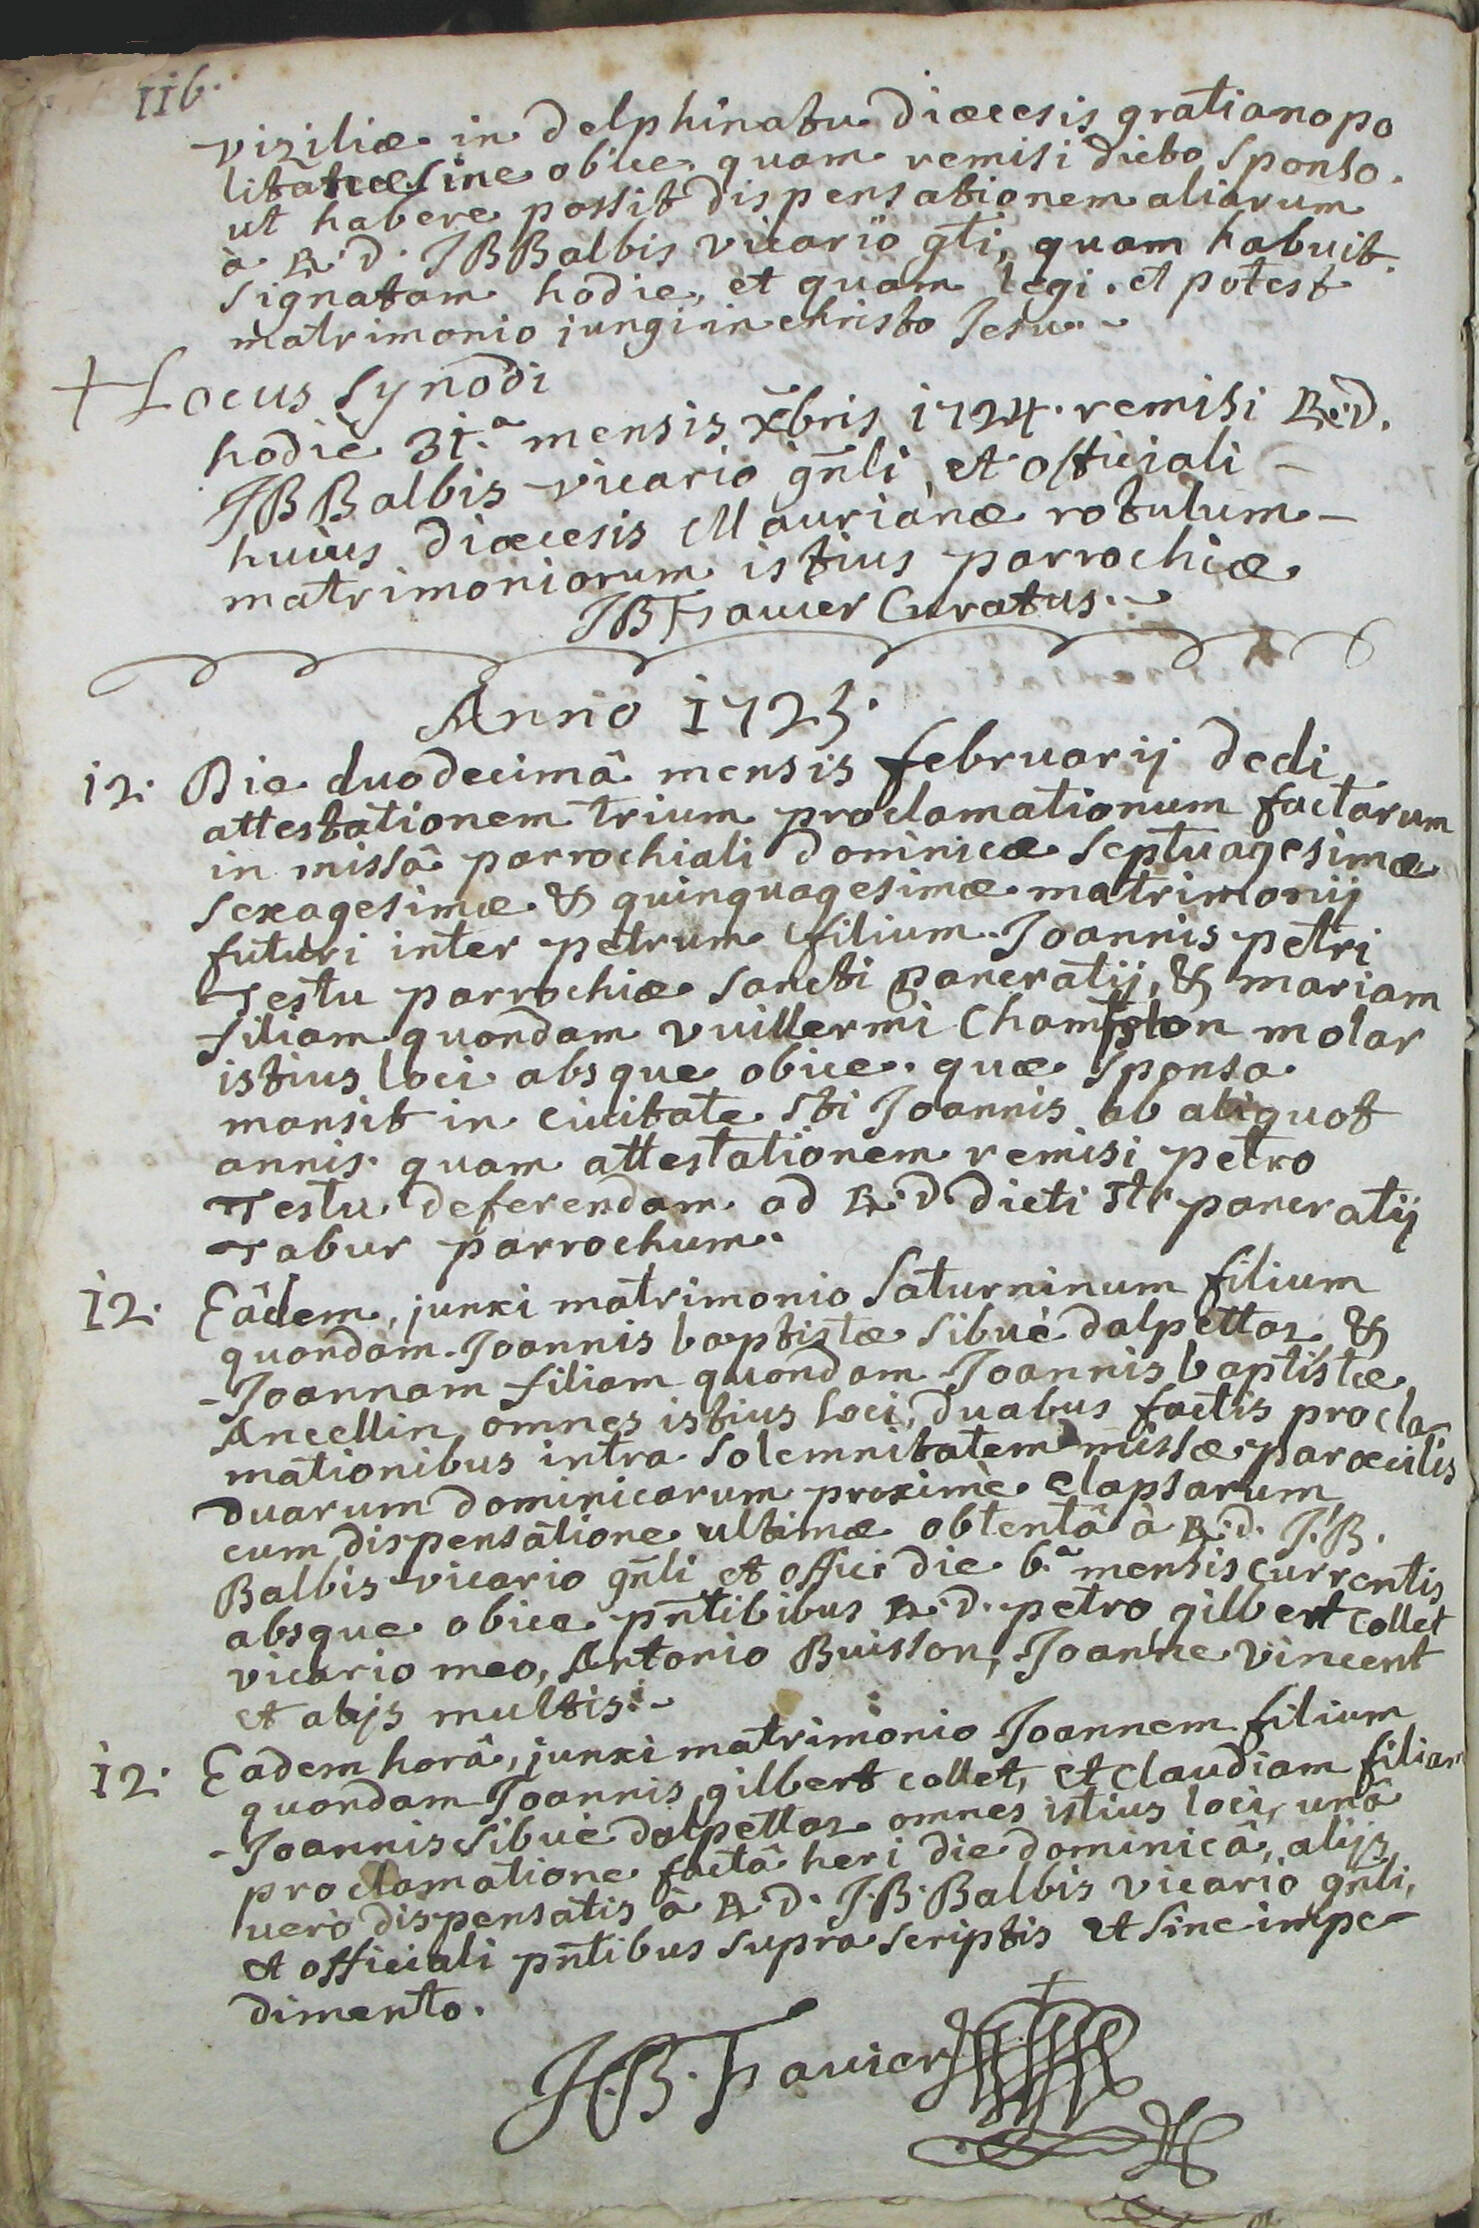 116.
viziliæ in delphinatu diœcesis gratianopo
litanæ sine obice. quam remisi dicto sponso.
ut habere possit dispensationem aliarum
à R.d. JB Balbis vicario gti, quam habuit.
signatam hodie, et quam legi. et potest
matrimonio jungi in christo Jesu.
+ Locus Synodi
hodie 31.a mensis xbris 1724. remisi R.d.
JB Balbis vicario gnli, et officiali
huius diœcesis Maurianæ rotulum
matrimoniorum istius parrochiæ
JB Travier Curatus.
Anno 1725.
12. Die duodecimâ mensis februarij dedi
attestationem trium proclamationum factarum
in missâ parrochiali dominicæ septuagesimæ
sexagesimæ & quinquagesimæ matrimonij
futuri inter petrum filium Joannis petri
Testu parrochiæ sancti pancratij, & mariam
filiam quondam vuillermi Champlon molar
istius loci absque obice. quæ sponsa
mansit in civitate sti Joannis ab aliquot
annis. quam attestationem remisi petro
Testu deferendam ad R.d dicti sti pancratij
Tabur parrochum.
12. Eâdem, junxi matrimonio Saturninum filium
quondam Joannis baptistæ Sibué dalpettaz &
Joannam filiam quondam Joannis baptistæ
Ancellin omnes istius loci, duabus factis procla
mationibus intra solemnitatem missæ parœcilis
duarum dominicarum proximè elapsarum
cum dispensatione ultimæ obtentâ à R.d. J.B.
Balbis vicario gnli et offici die 6.a mensis currentis
absque obice pntibibus R.d. petro gilbert collet
vicario meo, Antonio Buisson, Joanne vincent
et alijs multis.
12. Eadem horâ, junxi matrimonio Joannem filium
quondam Joannis gilbert collet, et claudiam filiam
Joannis Sibué dalpettaz omnes istius loci, unâ
proclamatione factâ heri die dominicâ, alijs
verò dispensatis à R.d. J.B. Balbis vicario gnli,
et officiali pntibus supra scriptis et sine impe
dimento.
J.B. Travier